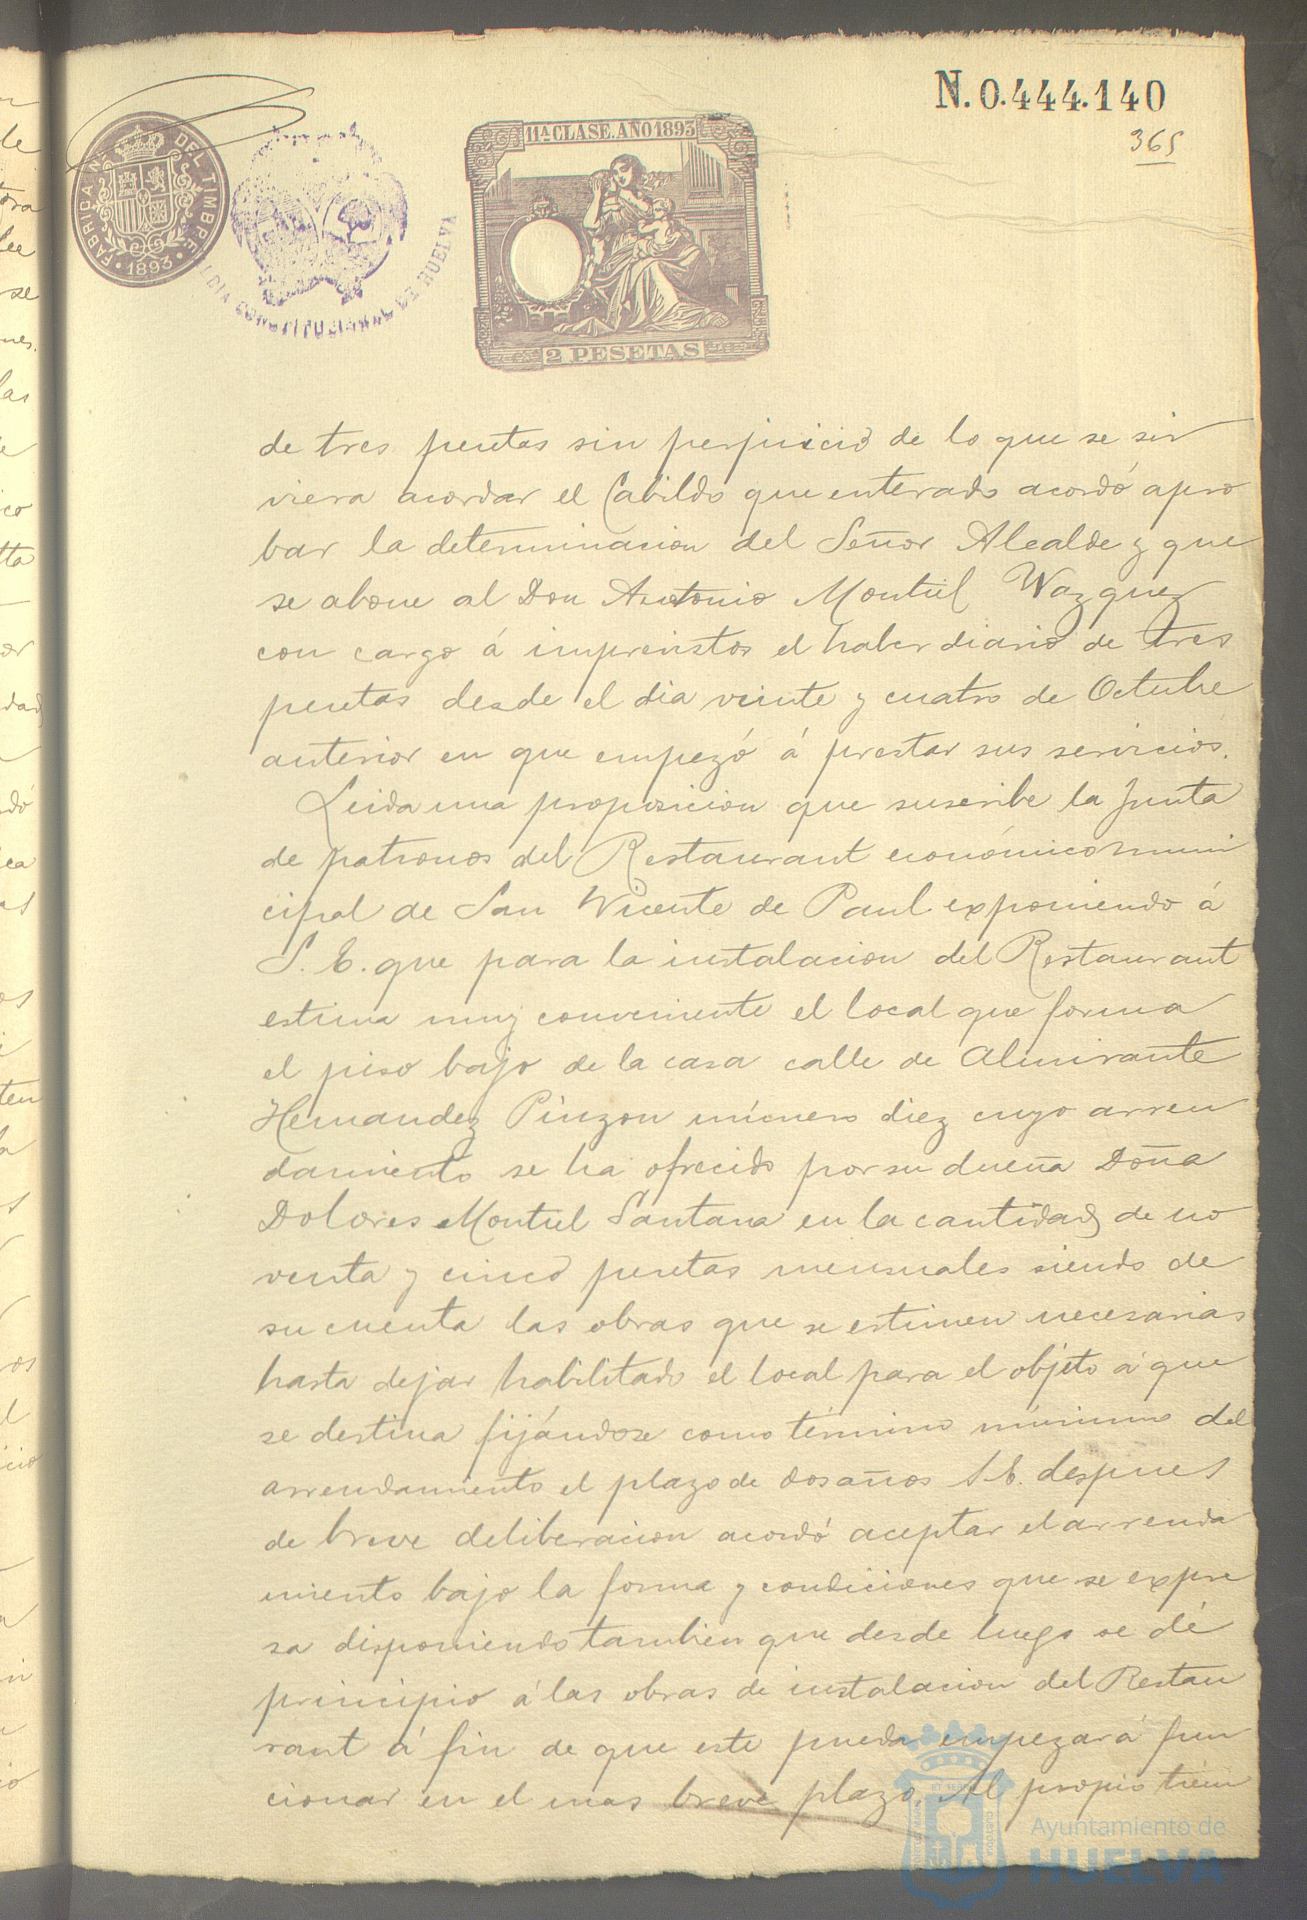 N. 0.444.140
365
11ª CLASE. AÑO 1893
FABRICA N. DEL TIMBRE
1893
CONSTITUCIONAL DE HUELVA
2 PESETAS
de tres pesetas sin perjuicio de lo que se sir
viera acordar el Cabildo que enterado acordó apro
bar la determinacion del Señor Alcalde y que
se abone al Don Antonio Montiel Vazquez
con cargo á imprevistos el haber diario de tres
pesetas desde el dia veinte y cuatro de Octubre
anterior en que empezó á prestar sus servicios.
Leida una proposicion que suscribe la Junta
de patronos del Restaurant económico muni
cipal de San Vicente de Paul exponiendo á
S. E. que para la instalacion del Restaurant
estima muy conveniente el local que forma
el piso bajo de la casa calle de Almirante
Hernandez Pinzon número diez cuyo arren
damiento se ha ofrecido por su dueña Doña
Dolores Montiel Santana en la cantidad de no
venta y cinco pesetas mensuales siendo de
su cuenta las obras que se estimen necesarias
hasta dejar habilitado el local para el objeto á que
se destina fijándose como término mínimo del
arrendamiento el plazo de dos años S. E. despues
de breve deliberacion acordó aceptar el arrenda
miento bajo la forma y condiciones que se expre
sa disponiendo tambien que desde luego se dé
principio á las obras de instalacion del Restau
rant á fin de que este pueda empezar á fun
cionar en el mas breve plazo. Al propio tiem
Ayuntamiento de
HUELVA